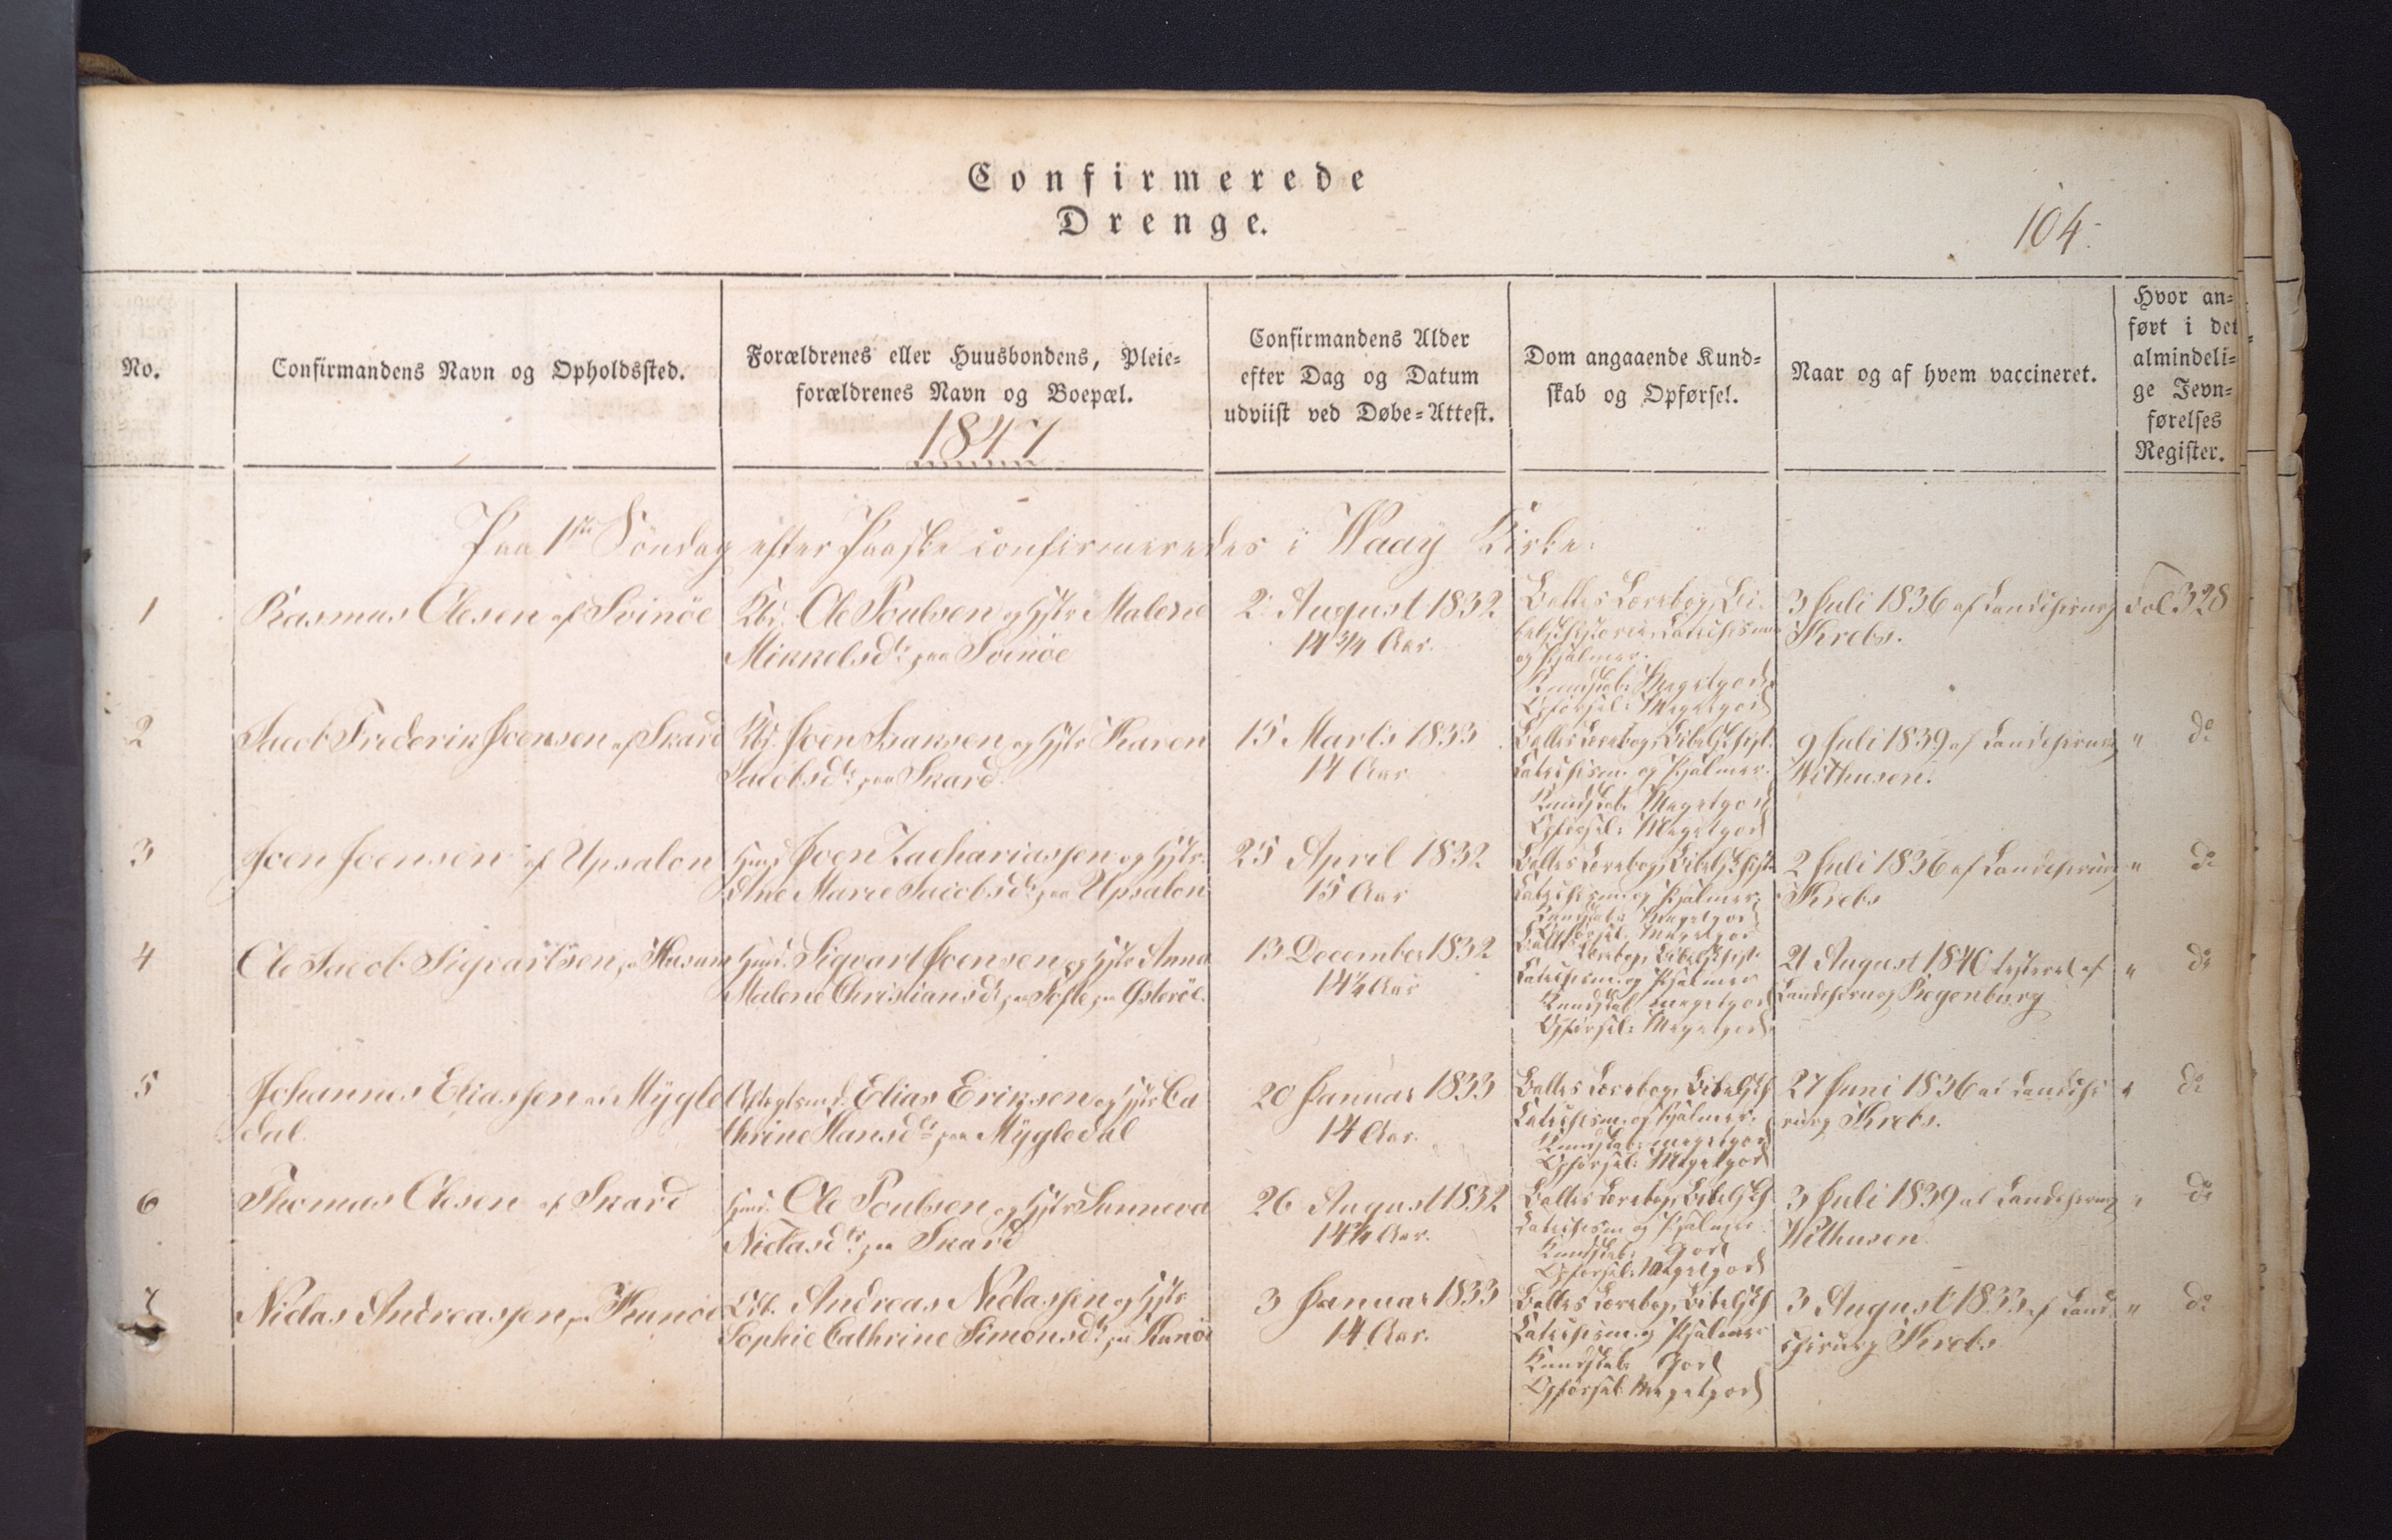 Confirmerede
Drenge.
104.
No.
Confirmandens Navn og Opholdssted.
Forældrenes eller Huusbondens, Pleie=
forældrenes Navn og Boepæl.
1847
Confirmandens Alder
efter Dag og Datum
udviist ved Døbe=Attest.
Dom angaaende Kund=
skab og Opførsel.
Naar og af hvem vaccineret.
Hvor an=
ført i det
almindeli=
ge Jevn=
førelses
Register.
Paa 1ste Søndag efter Paaske confirmeredes i Waay Kirke:
1
Rasmus Olesen af Svinöe
Kbd. Ole Poulsen og Hstr Malene
Mikkelsdtr paa Svinöe
2 August 1832
14 3/4 Aar.
Balles Lærebog, Bi-
belshistorie, Catechism
og Psalmer.
Kundskab: Megetgod
Opførsel: Megetgod
3 Juli 1836 af Landchirurg
Krebs.
Fol 328
2
Jacob Frederik Joensen af Skard
Kbd. Joen Isaksen og Hstr Karen
Jacobsdtr paa Skard.
15 Marts 1833
14 Aar
Balles Lærebog, Bibelshist.
Catechism. og Psalmer.
Kundskab: Megetgod
Opførsel: Megetgod
9 Juli 1839 af Landchirurg
Withusen.
" do
3
Joen Joensen af Upsalon
Huusd Joen Zachariassen og Hstr
Ane Marie Jacobsdtr paa Upsalon
25 April 1832
15 Aar
Balles Lærebog, Bibelshist
Catechism. og Psalmer.
Kundskab: Megetgod
Opførsel: Megetgod
2 Juli 1836 af Landchirurg
Krebs
" do
4
Ole Jacob Sigvartsen, Husum
Huusd. Sigvart Joensen og Hstr Anna
Malene Christiansdtr paa Østeröe.
13 December 1832
14 1/4 Aar
Balles Lærebog, Bibelshist.
Catechism. og Psalmer
Kundskab: megetgod
Opførsel: Megetgod
21 August 1840 testeret af
Landchirurg Regenburg
" do
5
Johannes Eliassen af Mygle
dal.
Elias Eriksen og Hstr Ca
thrine Hansdtr paa Mygledal
20 Januar 1833
14 Aar.
Balles Lærebog, Bibelsh
Catechism. og Psalmer.
Kundskab: megetgod
Opførsel: Megetgod
27 Juni 1836 af Landchi
rurg Krebs.
" do
6
Thomas Olesen af Skard
Huusd. Ole Poulsen og Hstr Sunneva
Niclasdtr paa Skard
26 August 1832
14 3/4 Aar.
Balles Lærebog, Bibelsh.
Catechism og Psalmer
Kundskab: god
Opførsel: Megetgod
3 Juli 1839 af Landchirurg
Withusen
" do
7
Niclas Andreassen paa Kunöe
Andreas Niclassen og Hstr
Sophie Cathrine Simonsdtr paa Kunöe
3 Januar 1833
14 Aar.
Balles Lærebog, Bibelsh
Catechism. og Psalmer
Kundskab: God
Opførsel: Megetgod
3 August 1833 af Land-
chirurg Krebs
" do